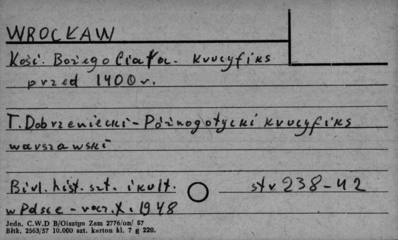 WROCŁAW
Kość. Bożego Ciała. krucyfiks
przed 1400 r.
T. Dobrzeniecki - Póżnogotycki krucyfiks
warszawski
Biul. hist. szt. i kult. str 238-42
w Polsce - rocz. X. 1948
Jedn. C.W.D B/Olsztyn Zam 2776/on/ 57
Bltk. 2563/57 10.000 szt. karton kl. 7 g 220.